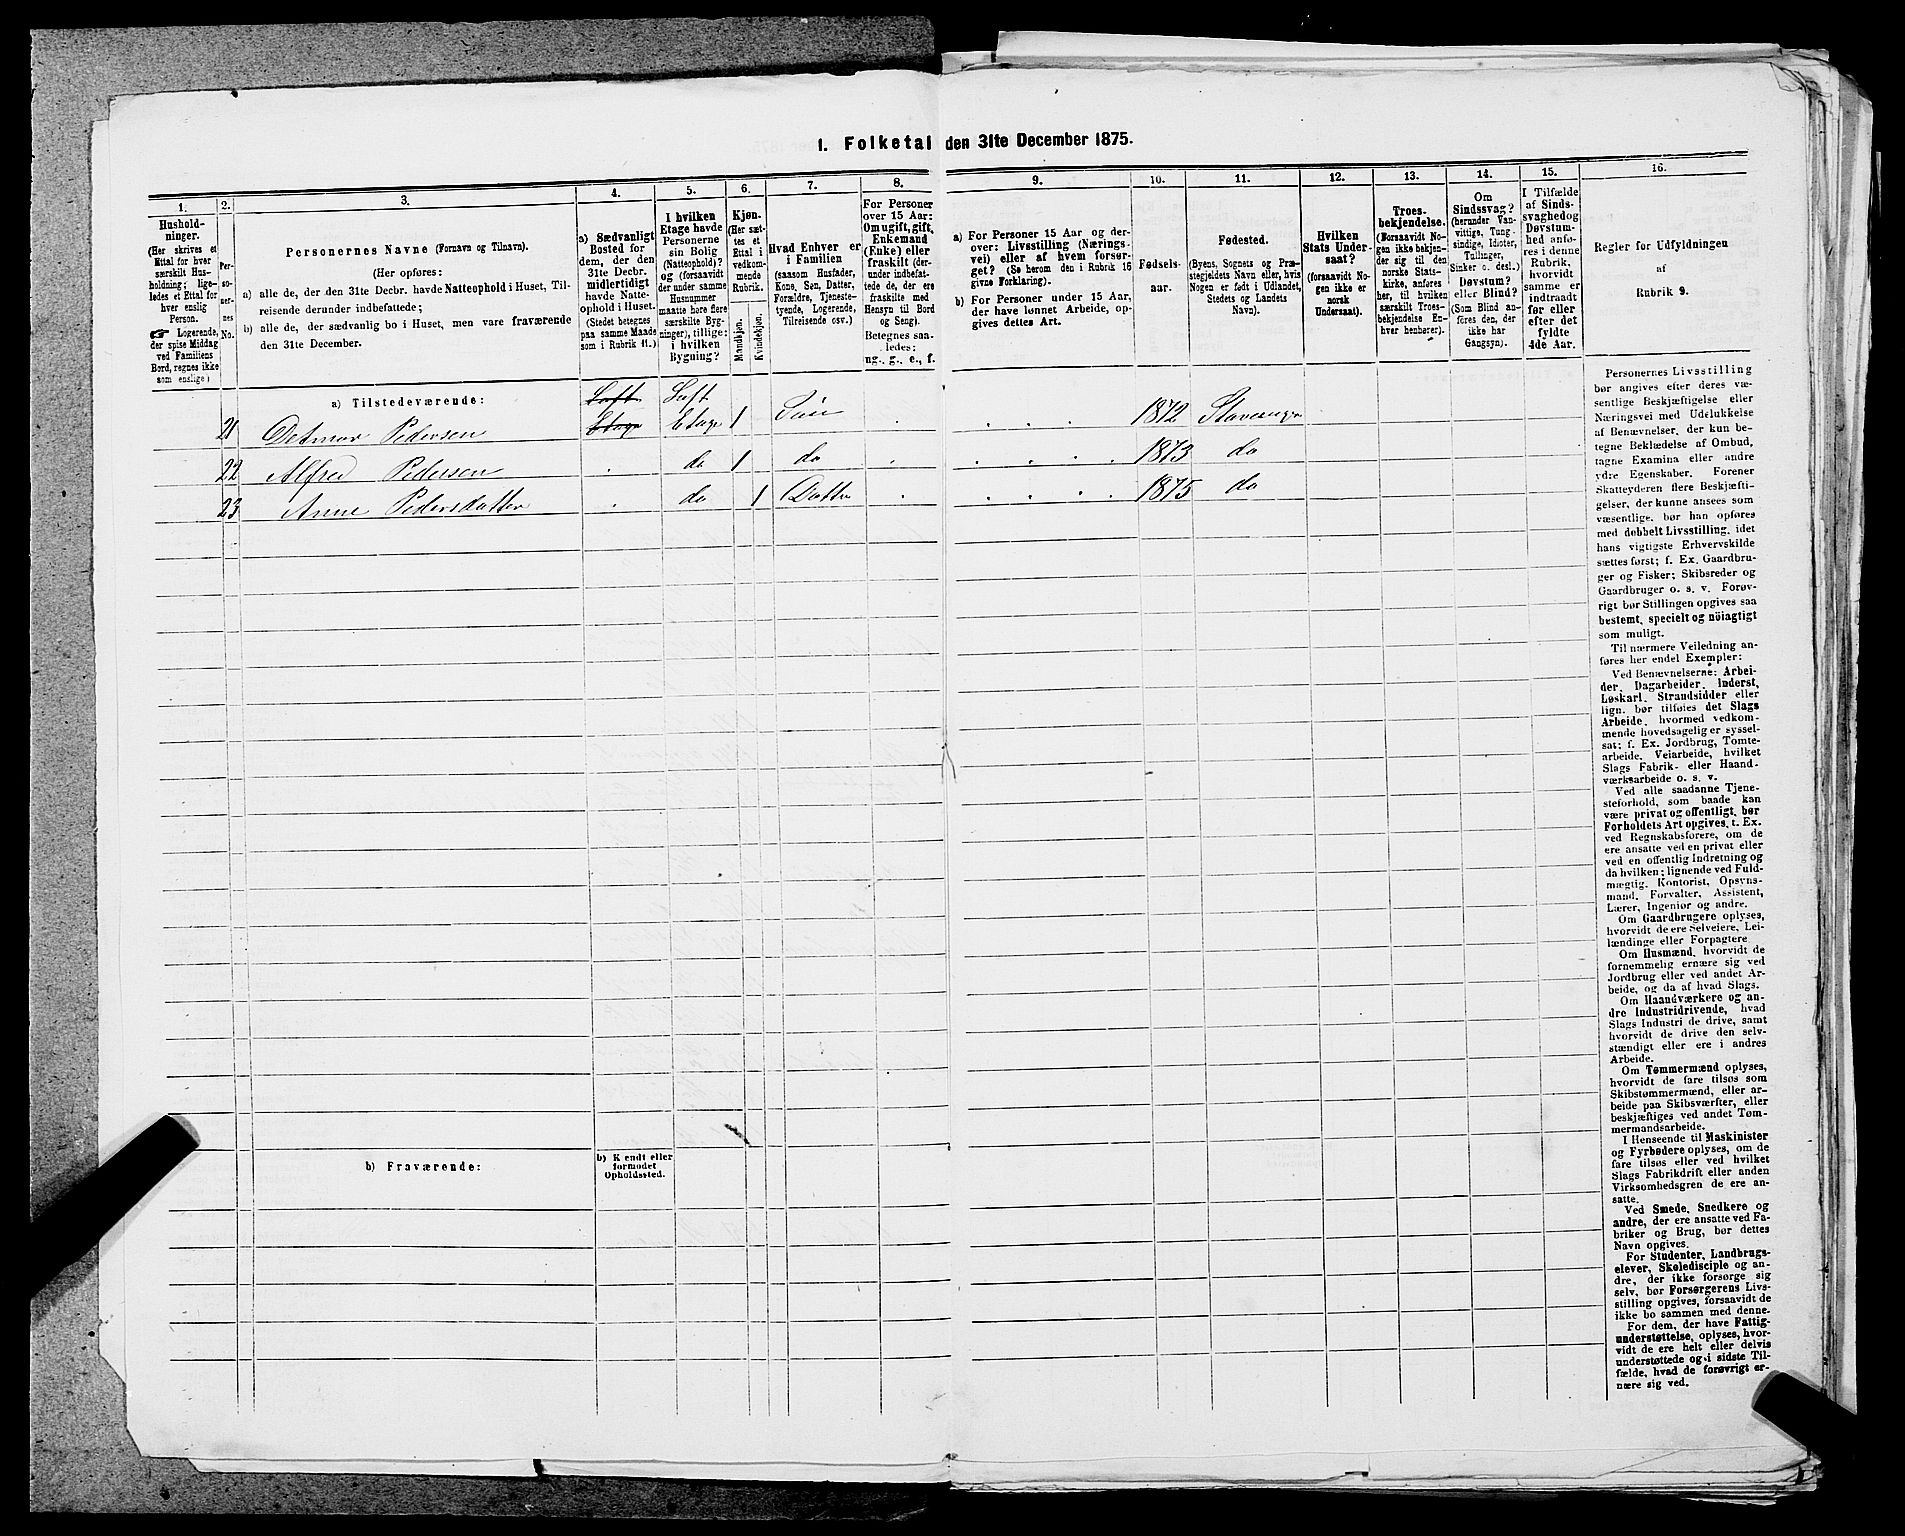 1. Folketal den 31te December 1875.
1.
Hushold-
ninger.
(Her skrives et
Ettal for hver
særskilt Hus-
holdning; lige-
ledes et Ettal for
hver enslig
Person.
☞ Logerende,
der spise Middag
ved Familiens
Bord, regnes ikke
som enslige)
2.
Per-
so-
ner-
nes
No.
3.
Personernes Navne (Fornavn og Tilnavn).
(Her opføres:
a) alle de, der den 31te Decbr. havde Natteophold i Huset, Til-
reisende derunder indbefattede;
b) alle de, der sædvanlig bo i Huset, men vare fraværende
den 31te December.
4.
a) Sædvanligt
Bosted for
dem, der den
31te Decbr.
midlertidigt
havde Natte-
ophold i Huset.
(Stedet betegnes
paa samme Maade
som i Rubrik 11.)
5.
I hvilken
Etage havde
Personerne
sin Bolig
(Natteophold)?
og (forsaavidt
der under samme
Husnummer
maatte høre flere
særskilte Byg-
ninger), tillige:
i hvilken
Bygning?
6.
Kjøn.
(Her sæt-
tes et
Ettal i
vedkom-
mende
Rubrik.
Mandkjøn.
Kvindekjøn.
7.
Hvad Enhver er
i Familien
(saasom Husfader,
Kone, Søn, Datter,
Forældre, Tjeneste-
tyende, Logerende,
Tilreisende osv.)
8.
For Personer
over 15 Aar:
Om ugift, gift,
Enkemand
(Enke) eller
fraskilt (der-
under indbefat-
tede de, der ere
fraskilte med
Hensyn til Bord
og Seng).
Betegnes saa-
ledes:
ug., g., e., f.
9.
a) For Personer 15 Aar og der-
over: Livsstilling (Nærings-
vei) eller af hvem forsør-
get? (Se herom den i Rubrik 16
givne Forklaring).
b) For Personer under 15 Aar,
der have lønnet Arbeide, op-
gives dettes Art.
10.
Fødsels-
aar.
11.
Fødested.
(Byens, Sognets og Præ-
stegjeldets Navn eller, hvis
Nogen er født i Udlandet,
Stedets og Landets
Navn).
12.
Hvilken
Stats Under-
saat?
(forsaavidt No-
gen ikke er
norsk
Undersaat).
13.
Troes-
bekjendelse.
(Forsaavidt No-
gen ikke bekjen-
der sig til den
norske Stats-
kirke, anføres
her, til hvilken
særskilt Troes-
bekjendelse En-
hver henhører).
14.
Om
Sindssvag?
(herunder Van-
vittige, Tung-
sindige, Idioter,
Tullinger,
Sinker o. desl.)
Døvstum?
eller Blind?
(Som Blind an-
føres den, der
ikke har
Gangsyn).
15.
I Tilfælde
af Sinds-
svaghed og
Døvstum-
hed anfø-
res i denne
Rubrik,
hvorvidt
samme er
indtraadt
før eller
efter det
fyldte
4de Aar.
16.
Regler for Udfyldningen
af
Rubrik 9.
a) Tilstedeværende:
Loft Loft
21 Detmar Pedersen Etage Etage 1 Søn 1872 Stavanger
22 Alfred Pedersen do 1 do 1873 do
23 Anne Pedersdatter do 1 Datter 1875 do
b) Fraværende:
b) Kjendt eller
formodet
Opholdssted.
Personernes Livsstilling
bør angives efter deres væ-
sentlige Beskjæftigelse eller
Næringsvei med Udelukkelse
af Benævnelser, der kun be-
tegne Beklædelse af Ombud,
tagne Examina eller andre
ydre Egenskaber. Forener
Skatteyderen flere Beskjæfti-
gelser, der kunne ansees som
væsentlige, bør han opføres
med dobbelt Livsstilling, idet
hans vigtigste Erhvervskilde
sættes først; f. Ex. Gaardbru-
ger og Fisker; Skibsreder og
Gaardbruger o. s. v. Forøv-
rigt bør Stillingen opgives saa
bestemt, specielt og nøiagtigt
som muligt.
Til nærmere Veiledning an-
føres her endel Exempler:
Ved Benævnelserne: Arbei-
der, Dagarbeider, Inderst,
Løskarl, Strandsidder eller
lign. bør tilføies det Slags
Arbeide, hvormed vedkom-
mende hovedsagelig er syssel-
sat; f. Ex. Jordbrug, Tomte-
arbeide, Veiarbeide, hvilket
Slags Fabrik- eller Haand-
værksarbeide o. s. v.
Ved alle saadanne Tjene-
steforhold, som baade kan
være privat og offentligt, bør
Forholdets Art opgives, t. Ex.
ved Regnskabsførere, om de
ere ansatte ved en privat eller
ved en offentlig Indretning og
da hvilken; lignende ved Fuld-
mægtig, Kontorist, Opsyns-
mand, Forvalter, Assistent,
Lærer, Ingeniør og andre.
Om Gaardbrugere oplyses,
hvorvidt de ere Selveiere, Lei-
lændinge eller Forpagtere
Om Husmænd, hvorvidt de
fornemmelig ernære sig ved
Jordbrug eller ved andet Ar-
beide, og da af hvad Slags.
Om Haandværkere og an-
dre Industridrivende, hvad
Slags Industri de drive, samt
hvorvidt de drive den selv-
stændigt eller ere i andres
Arbeide.
Om Tømmermænd oplyses,
hvorvidt de fare tilsøs som
Skibstømmermænd, eller ar-
beide paa Skibsværfter, eller
beskjæftiges ved andet Tøm-
mermandsarbeide.
I Henseende til Maskinister
og Fyrbødere oplyses, om de
fare tilsøs eller ved hvilket
Slags Fabrikdrift eller anden
Virksomhedsgren de ere an-
satte.
Ved Smede, Snedkere og
andre, der ere ansatte ved Fa-
briker og Brug, bør dettes
Navn opgives.
For Studenter, Landbrugs-
elever, Skoledisciple og an-
dre, der ikke forsørge sig
selv, bør Forsørgerens Livs-
stilling opgives, forsaavidt de
ikke bo sammen med denne.
For dem, der have Fattig-
understøttelse, oplyses, hvor-
vidt de ere helt eller delvis
understøttede og i sidste Til-
fælde, hvad de forøvrigt er-
nære sig ved.